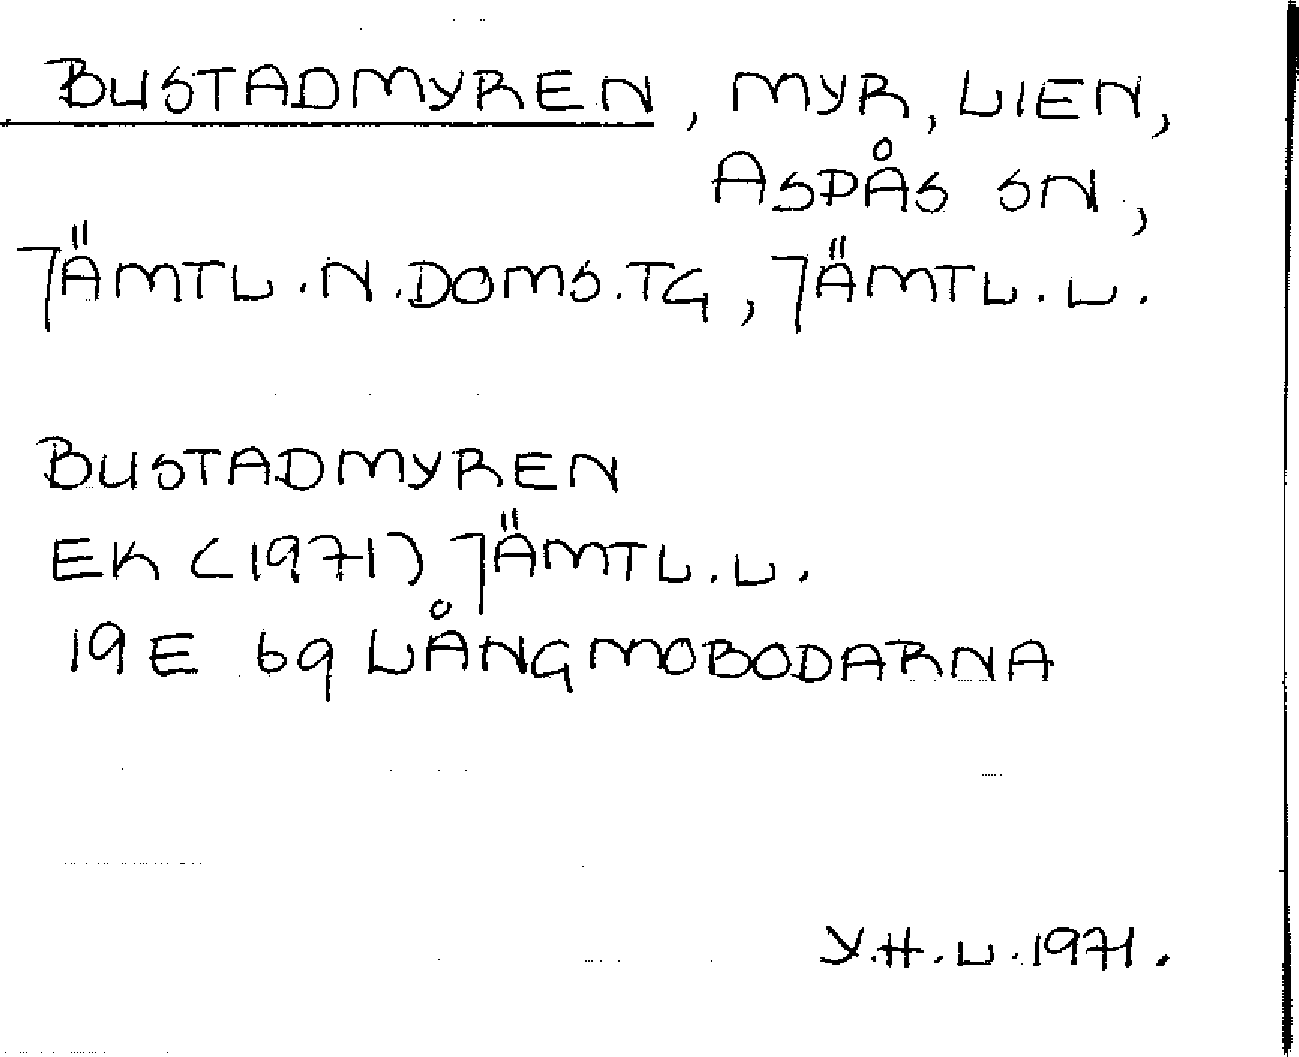 BUSTADMYREN, MYR, LIEN,
ASPÅS SN,
JÄMTL.N.DOMS.TG, JÄMTL.L.
BUSTADMYREN
EK (1971) JÄMTL.L.
19E 69 LÅNGMOBODARNA
Y.H.L.1971.